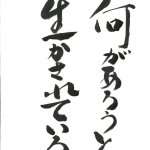 何があろうと
生かされている